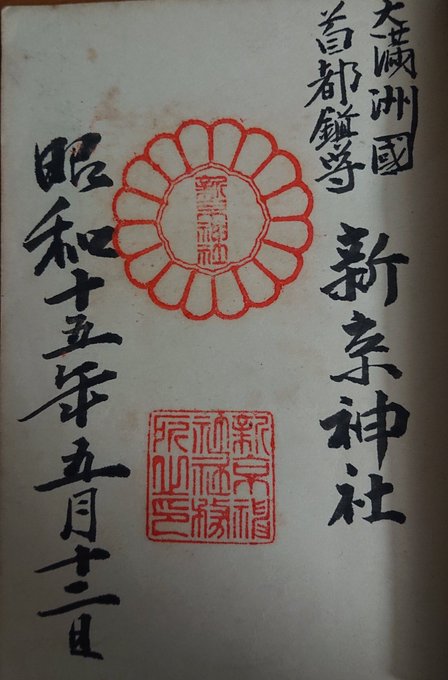 大滿洲國
首都鎭守
新京神社
新京神社
新京神
社社務
所之印
昭和十五年五月十二日